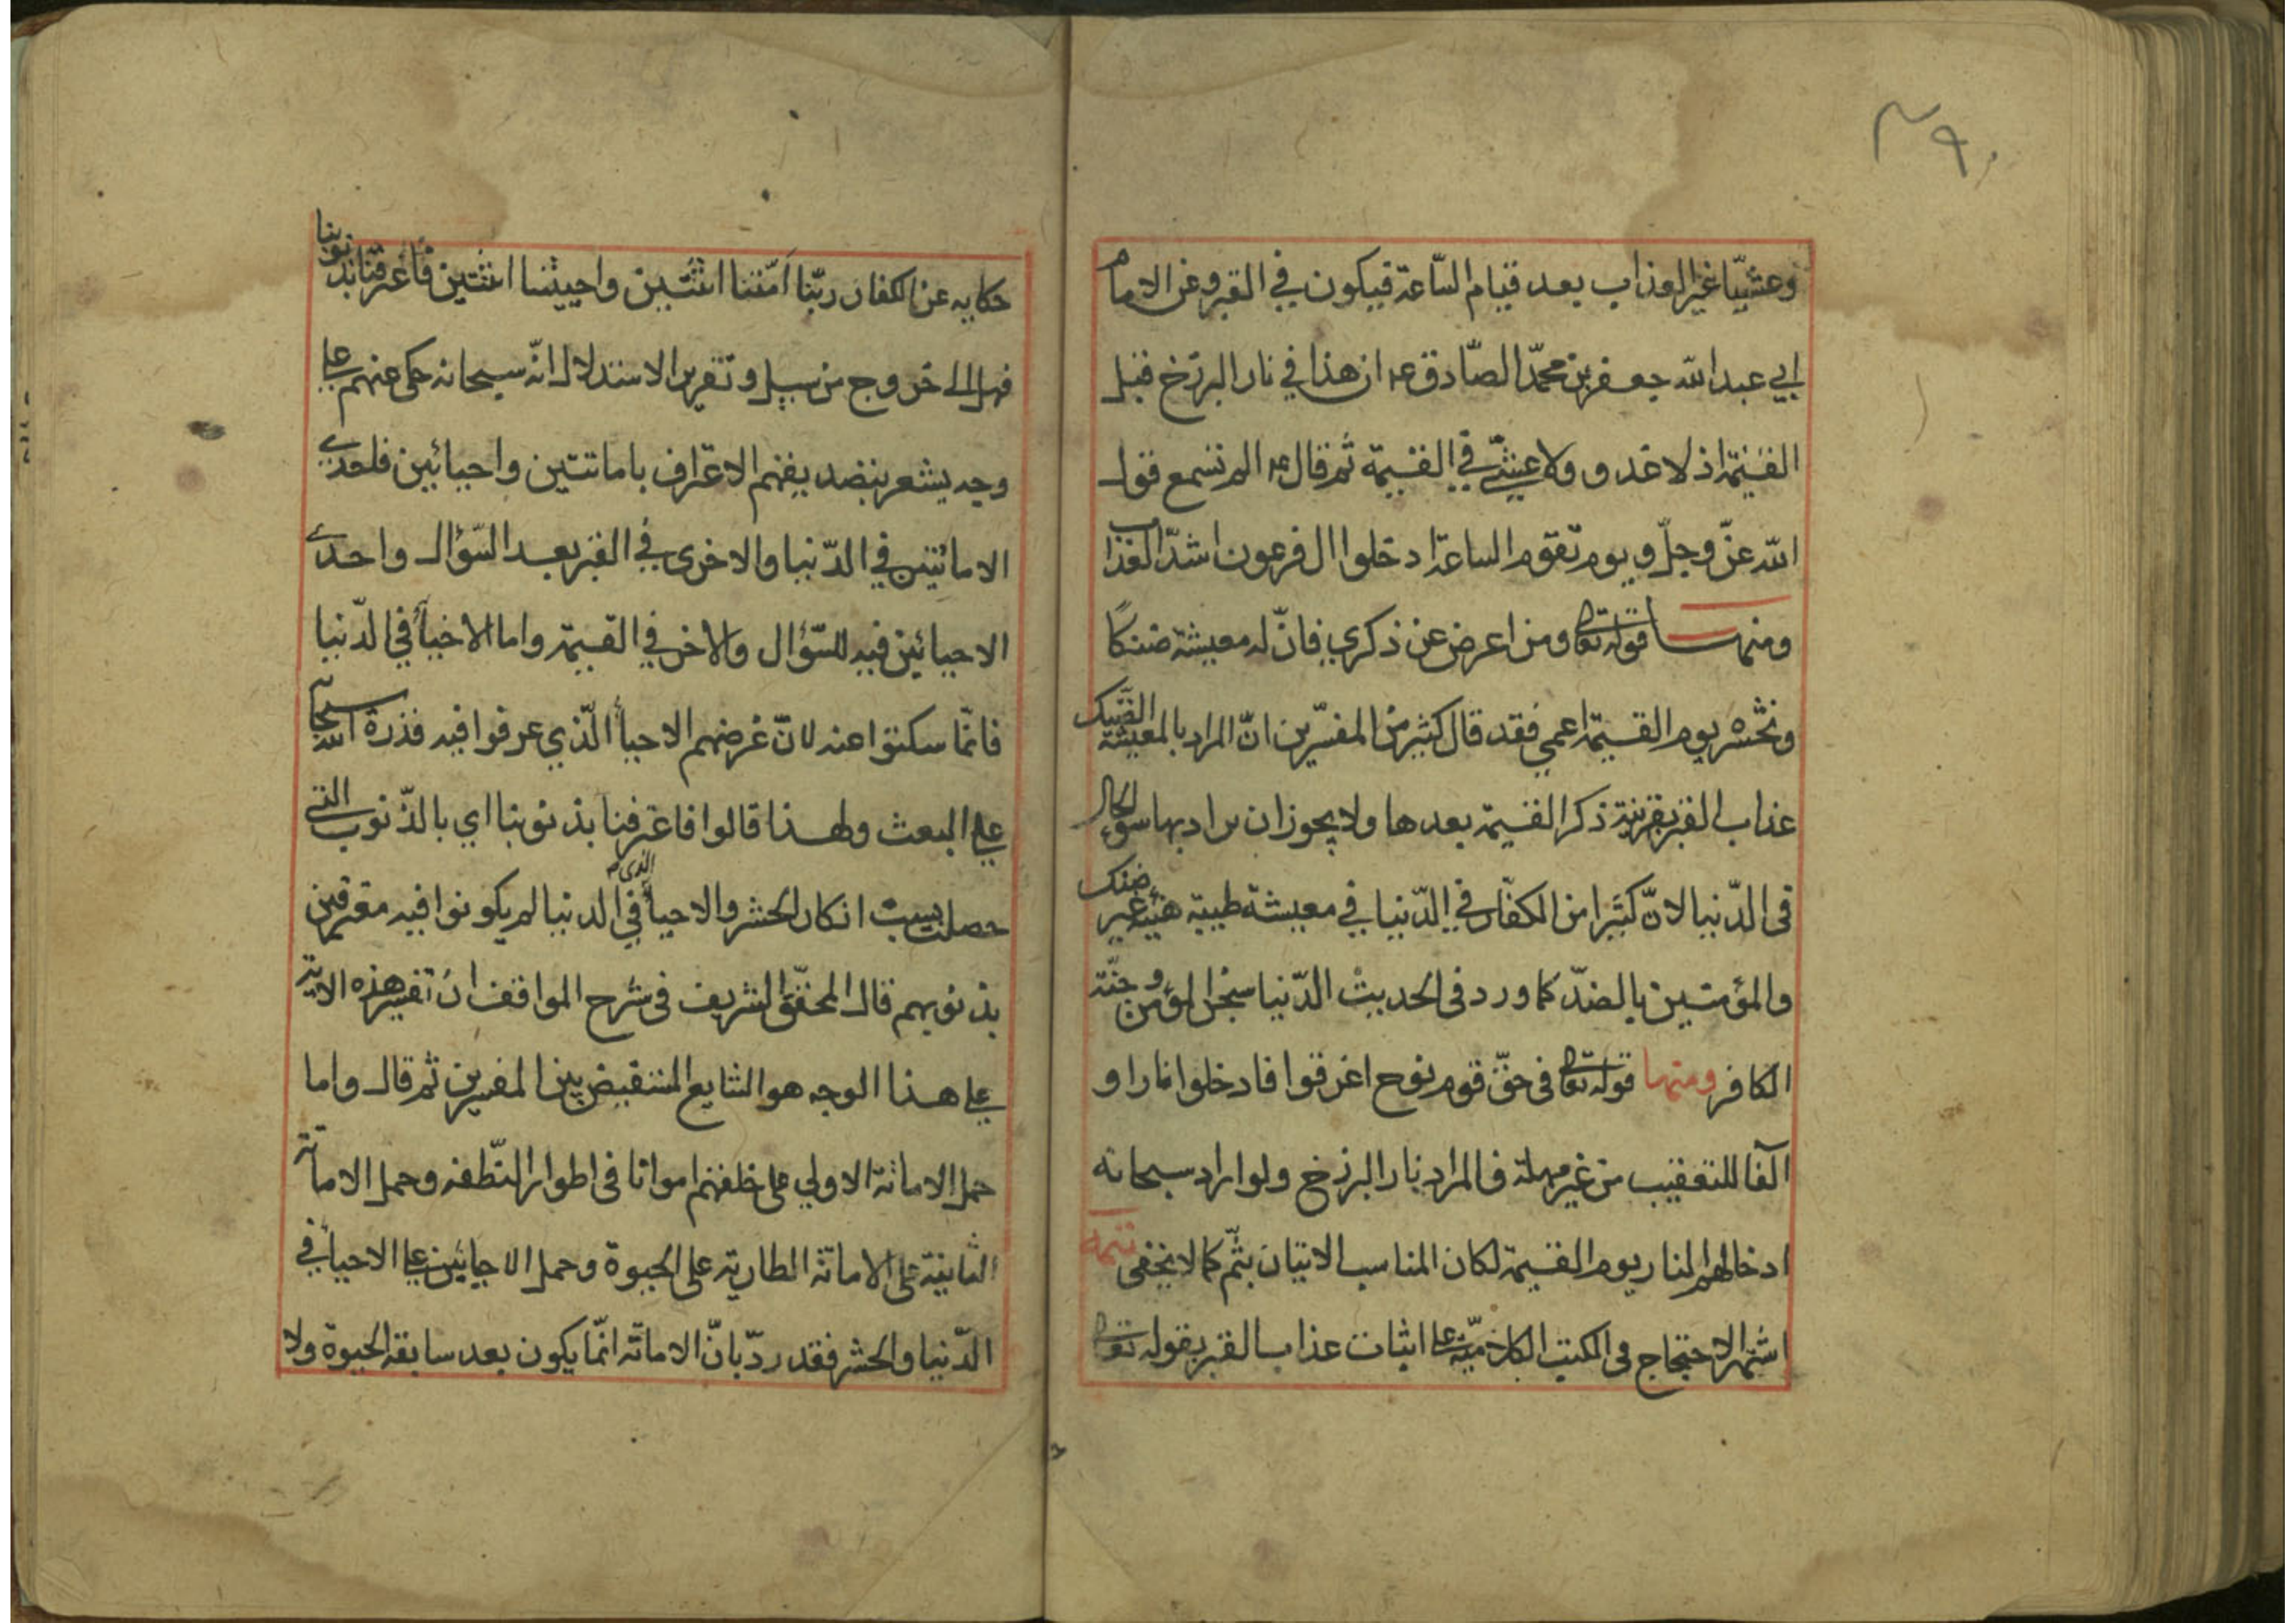 ٤٩٠
وعشيّا غير العذاب بعد قيام السّاعة فيكون في القبر وعن الامام
ابي عبد الله جعفر بن محمّد الصّادق عه ان هذا في نار البرزخ قبل
القيمة اذ لا غدو ولا عشيّ في القيمة ثم قال عه الم تسمع قول
الله عزّ وجلّ ويوم تقوم الساعة ادخلوا ال فرعون اشدّ العذاب
ومنها قوله تعالى ومن اعرض عن ذكري فانّ له معيشة ضنكًا
ونحشره يوم القيمة اعمي فقد قال كثير من المفسّرين انّ المراد بالمعيشة الضّنك
عذاب القبر بقرينة ذكر القيمة بعدها ولا يجوز ان يراد بها سوء الحال
في الدّنيا لانّ كثيرا من الكفّار في الدّنيا في معيشة طيبة هنيّة غير ضنك
والمؤمنين بالضدّ كما ورد في الحديث الدّنيا سجن المؤمن وجنّة
الكافر ومنها قوله تعالى في حقّ قوم نوح اغرقوا فادخلوا نارا و
الفا للتعقيب من غير مهلة فالمراد نار البرزخ ولو اراد سبحانه
ادخالهم النار يوم القيمة لكان المناسب الاتيان بثمّ كما لا يخفى تتمة
اشتهر الاحتجاج في الكتب الكلاميّة على اثبات عذاب القبر بقوله تعالى
حكايه عن الكفار ربّنا امّتنا اثنتين واحييتنا اثنتين فاعترفنا بذنوبنا
فهل الى خروج من سبيل وتقرير الاستدلال انّه سبحانه حكى عنهم على
وجه يشعر بتصديقهم الاعتراف باماتتين واحيائين فاحدي
الاماتتين في الدّنيا والاخرى في القبر بعد السّؤال واحدي
الاحيائين فيه للسّؤال والاخر في القيمة واما الاحيأ في الدّنيا
فانّما سكتوا عنه لانّ غرضهم الاحيأ الّذي عرفوا فيه قدرة الله سبحانه
علي البعث ولهذا قالوا فاعترفنا بذنوبنا اي بالذّنوب التي
حصلت بسبب انكار الحشر والاحيأ الذي في الدنيا لم يكونوا فيه معترفين
بذنوبهم قال المحقّق الشريف في شرح المواقف ان تفسير هذه الاية
علي هذا الوجه هو الشايع المستفيض بين المفسرين ثم قال واما
حمل الاماتة الاولي على خلقهم امواتا في اطوار النّطفه وحمل الاماتة
الثانية على الاماتة الطارية على الحيوة وحمل الاحيائين على الاحيأ في
الدّنيا والحشر فقد ردّ بانّ الاماتة انّما يكون بعد سابقه الحيوة ولا